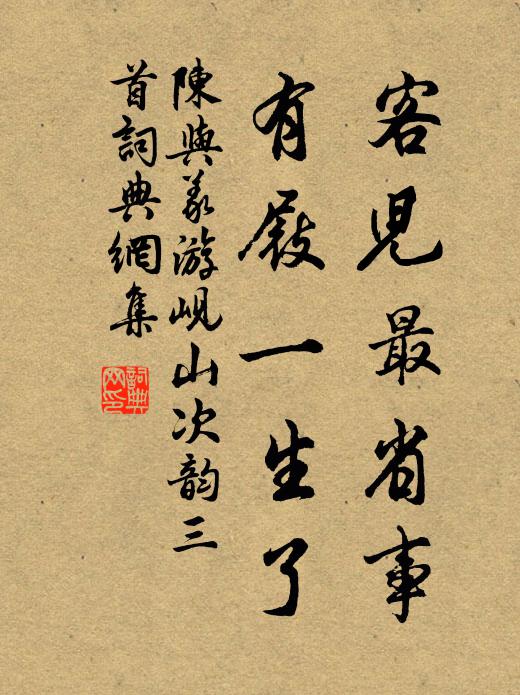 客兒最省事
有屐一生了
陳與義游峴山次韵三
首詞典網集
詞典
网印